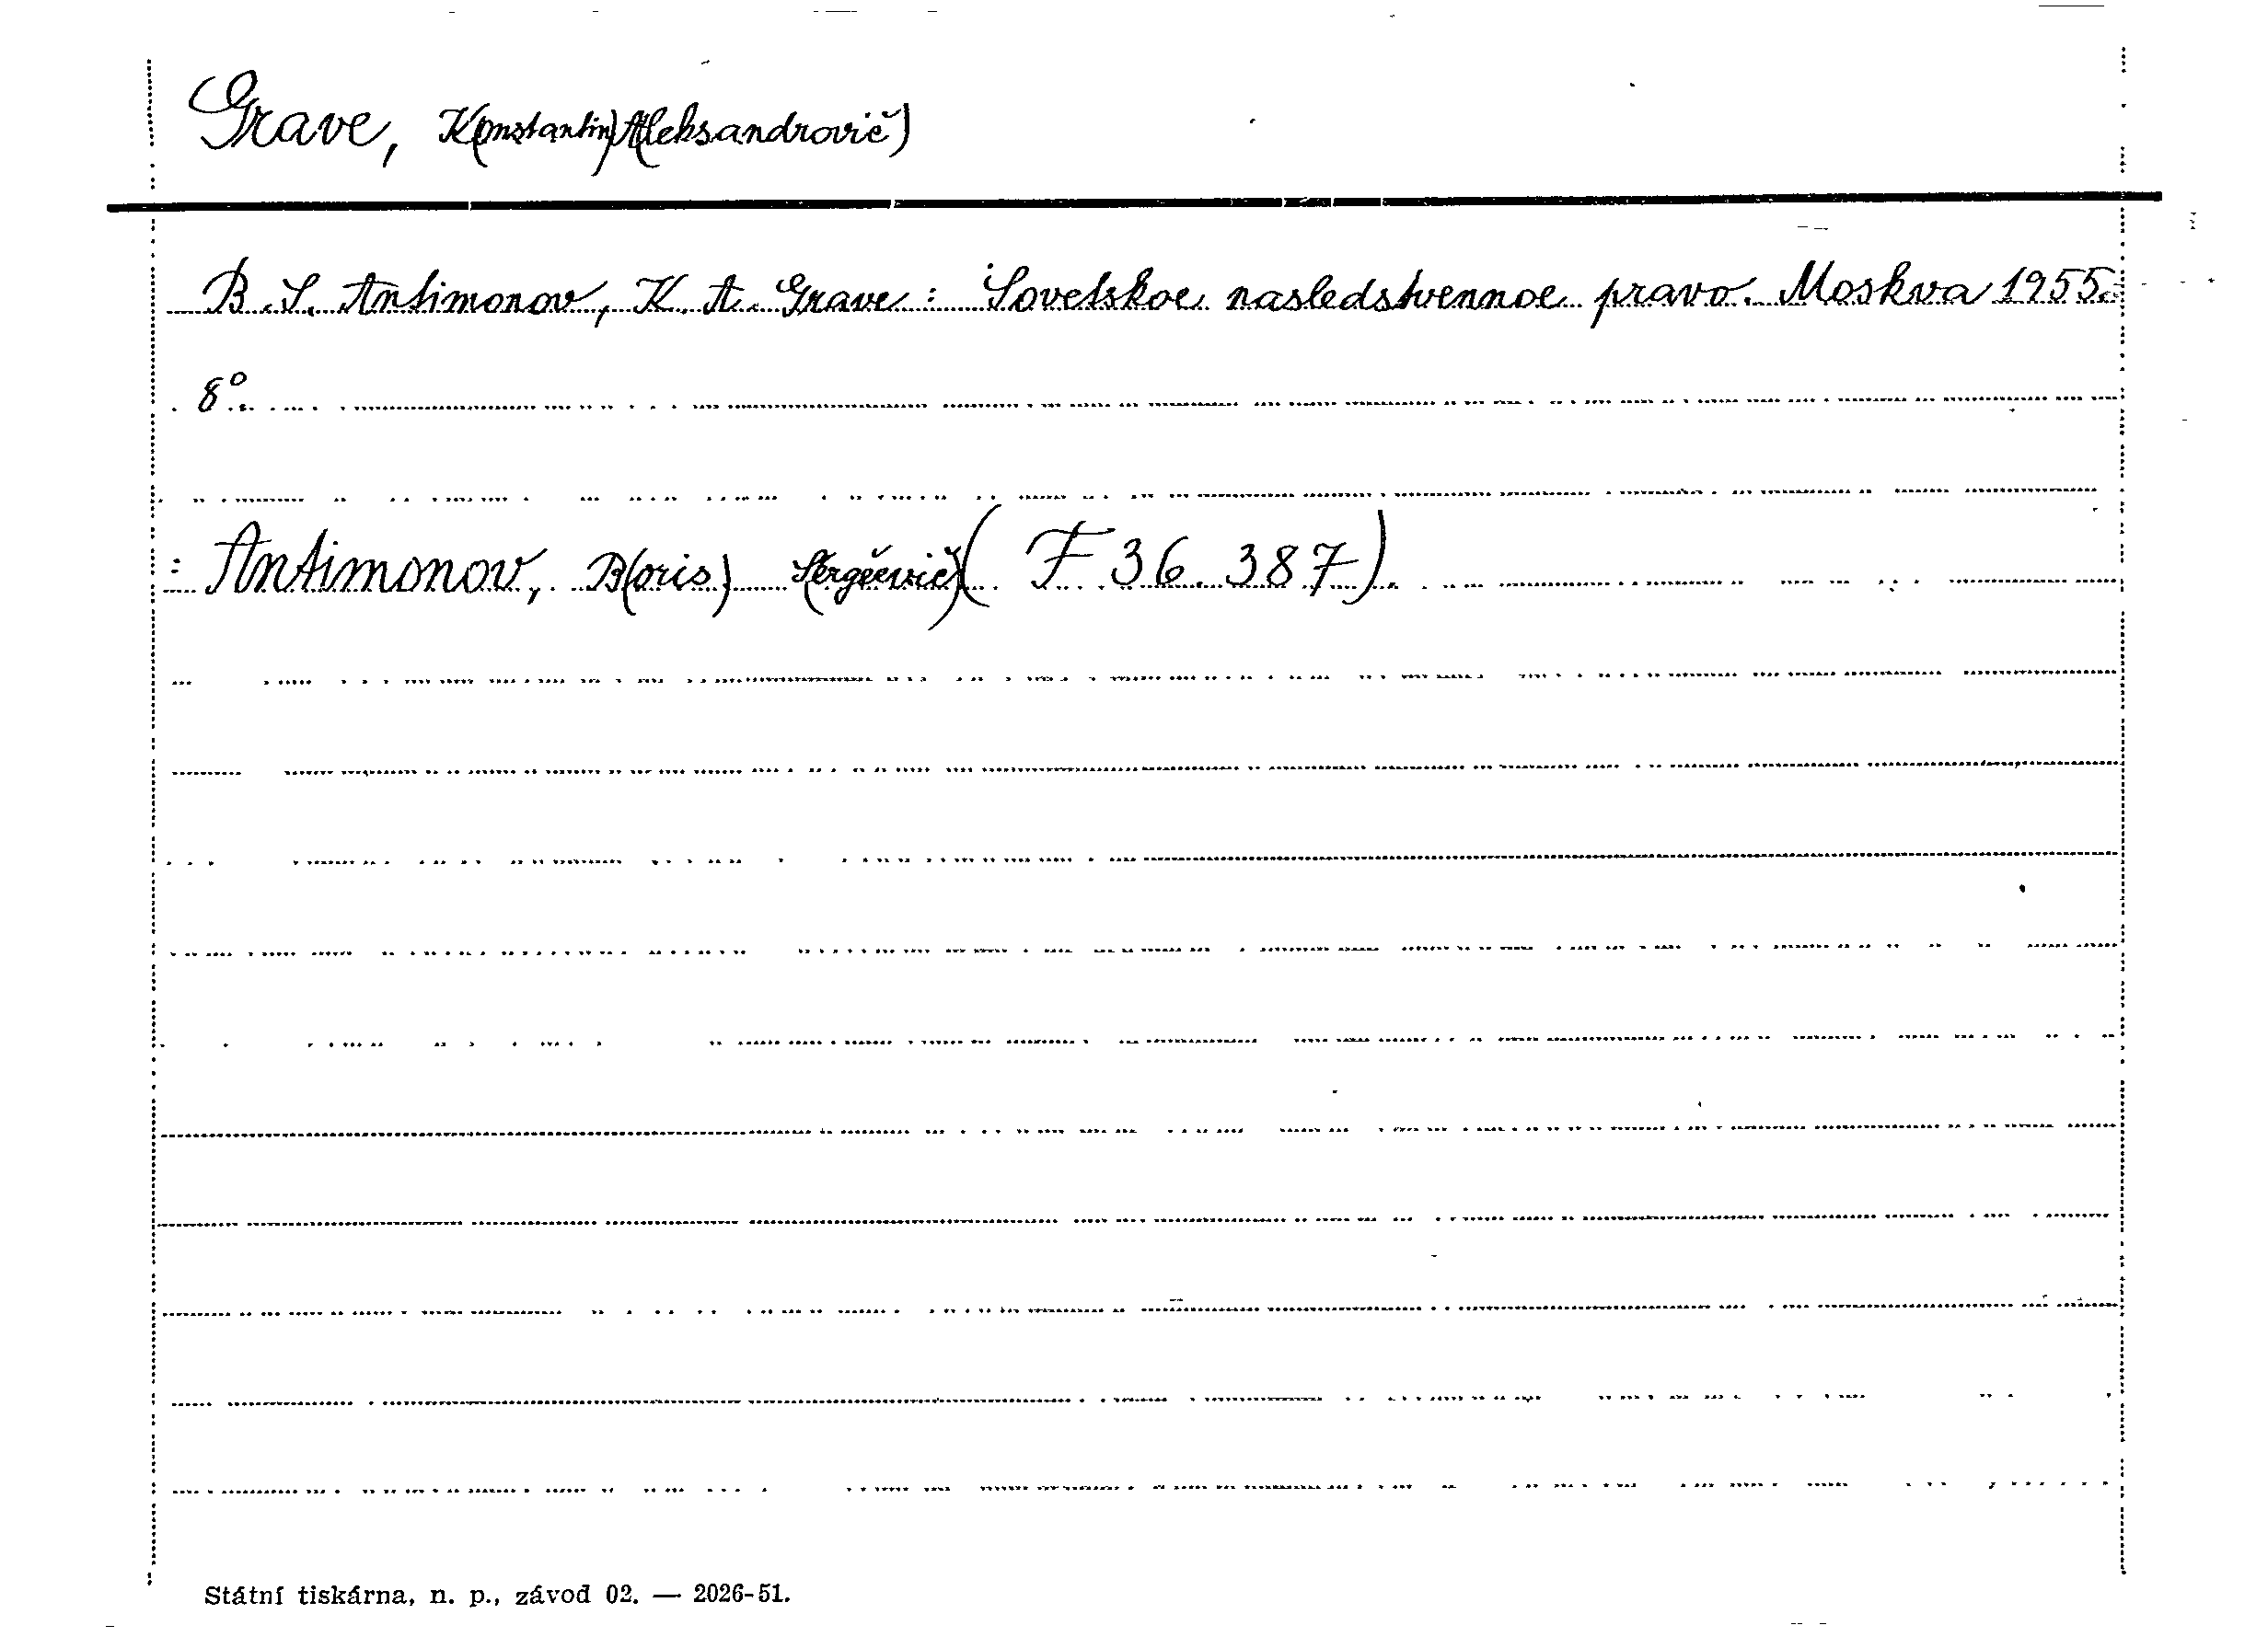 Grave, K(onstantin) A(leksandrovič)
B. S. Antimonov, K. A. Grave: Sovetskoe nasledstvennoe pravo. Moskva 1955.
8°.
: Antimonov, B(oris) S(ergěevič) (F 36.387).
Státní tiskárna, n. p., závod 02. — 2026-51.